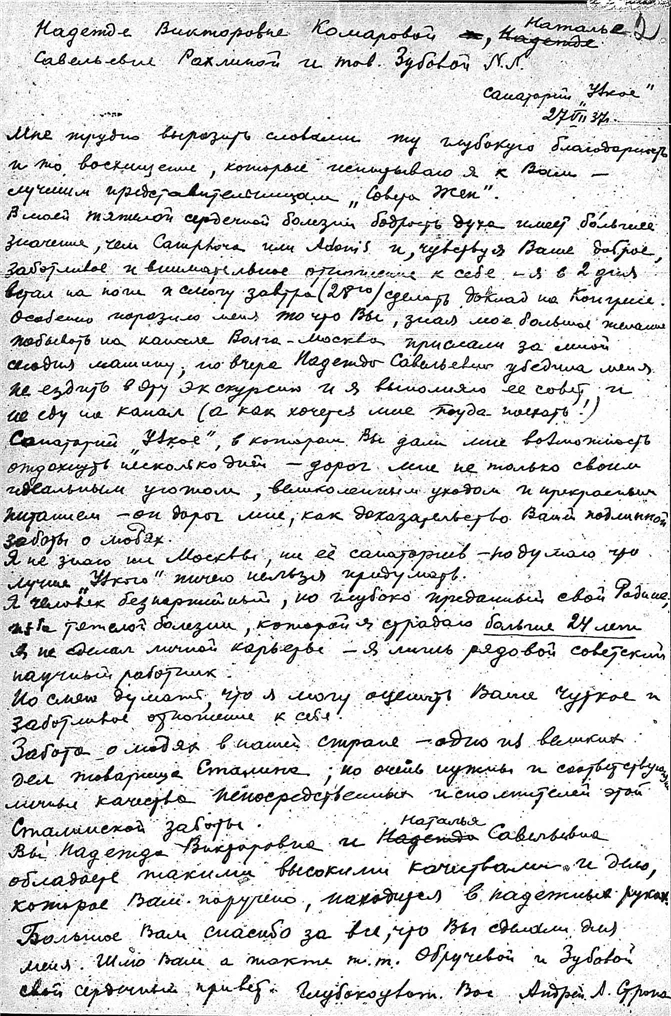 Наталье 2
Надежде Викторовне Комаровой и, Надежде
Савельевне Рахлиной и тов. Зубовой Л.Л.
Санаторий "Узкое"
27 VII 37 г.
Мне трудно выразить словами ту глубокую благодарность
и то восхищение, которые испытываю я к Вам –
лучшим представительницам "Совета Жен".
В моей тяжелой сердечной болезни бодрость духа имеет большее
значение, чем Camphora или Adonis и, чувствуя Ваше доброе,
заботливое и внимательное отношение к себе – я в 2 дня
встал на ноги и смогу завтра (28го) сделать доклад на Конгрессе.
Особенно поразило меня то что Вы, зная мое большое желание
побывать на канале Волга-Москва прислали за мной
сегодня машину; но вчера Надежда Савельевна убедила меня
не ездить в эту экскурсию и я выполняю ее совет и
не еду на канал (а как хочется мне туда поехать!)
Санаторий "Узкое", в котором Вы дали мне возможность
отдохнуть несколько дней – дорог мне не только своим
идеальным уютом, великолепным уходом и прекрасным
питанием – он дорог мне, как доказательство Вашей подлинной
заботы о людях.
Я не знаю ни Москвы, ни её санаториев – но думаю что
лучше "Узкого" ничего нельзя придумать.
Я человек беспартийный, но глубоко преданный своей Родине.
Из-за тяжелой болезни, которой я страдаю больше 24 лет
я не сделал личной карьеры – я лишь рядовой советский
научный работник.
Но смею думать, что я могу оценить Ваше чуткое и
заботливое отношение к себе.
Забота о людях в нашей стране – одно из великих
дел товарища Сталина; но очень нужны и соответствующие
личные качества непосредственных исполнителей этой
Сталинской заботы.
Наталья
Вы, Надежда Викторовна и Надежда Савельевна
обладаете такими высокими качествами и дело,
которое Вам поручено, находится в надежных руках.
Большое Вам спасибо за все, что Вы сделали для
меня. Шлю Вам а также т.т. Обручевой и Зубовой
свой сердечный привет. Глубокоуваж. Вас Андрей Л.